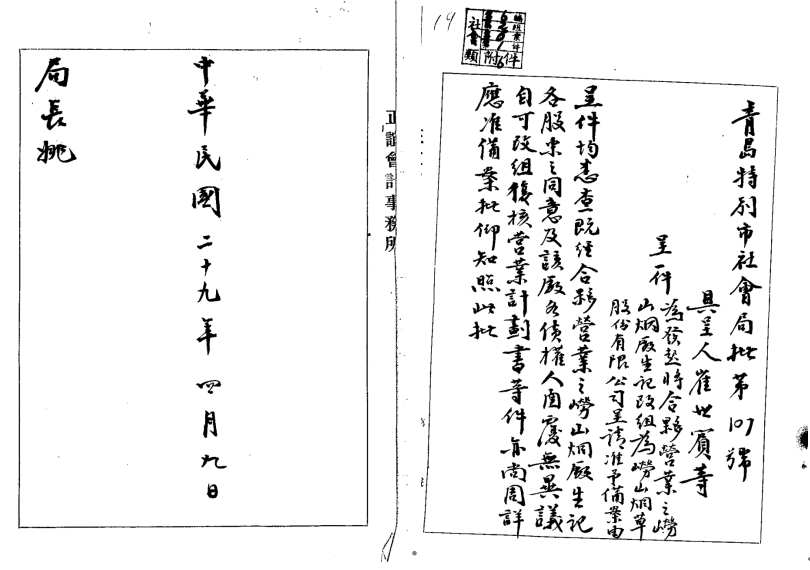 14
社會類
附件
青島特別市社會局批第107號
具呈人崔世賓等
呈一件
為發起將合夥營業之嶗
山烟廠生記改組為嶗山烟草
股份有限公司呈請准予備業由
呈件均悉查既經合夥營業之嶗山烟廠生記
各股東之同意及該廠各債權人函覆無異議
自可改組復核營業計劃書等件亦尚周詳
應准備案批仰知照此批
正誼會計事務所
中華民國二十九年四月九日
局長姚